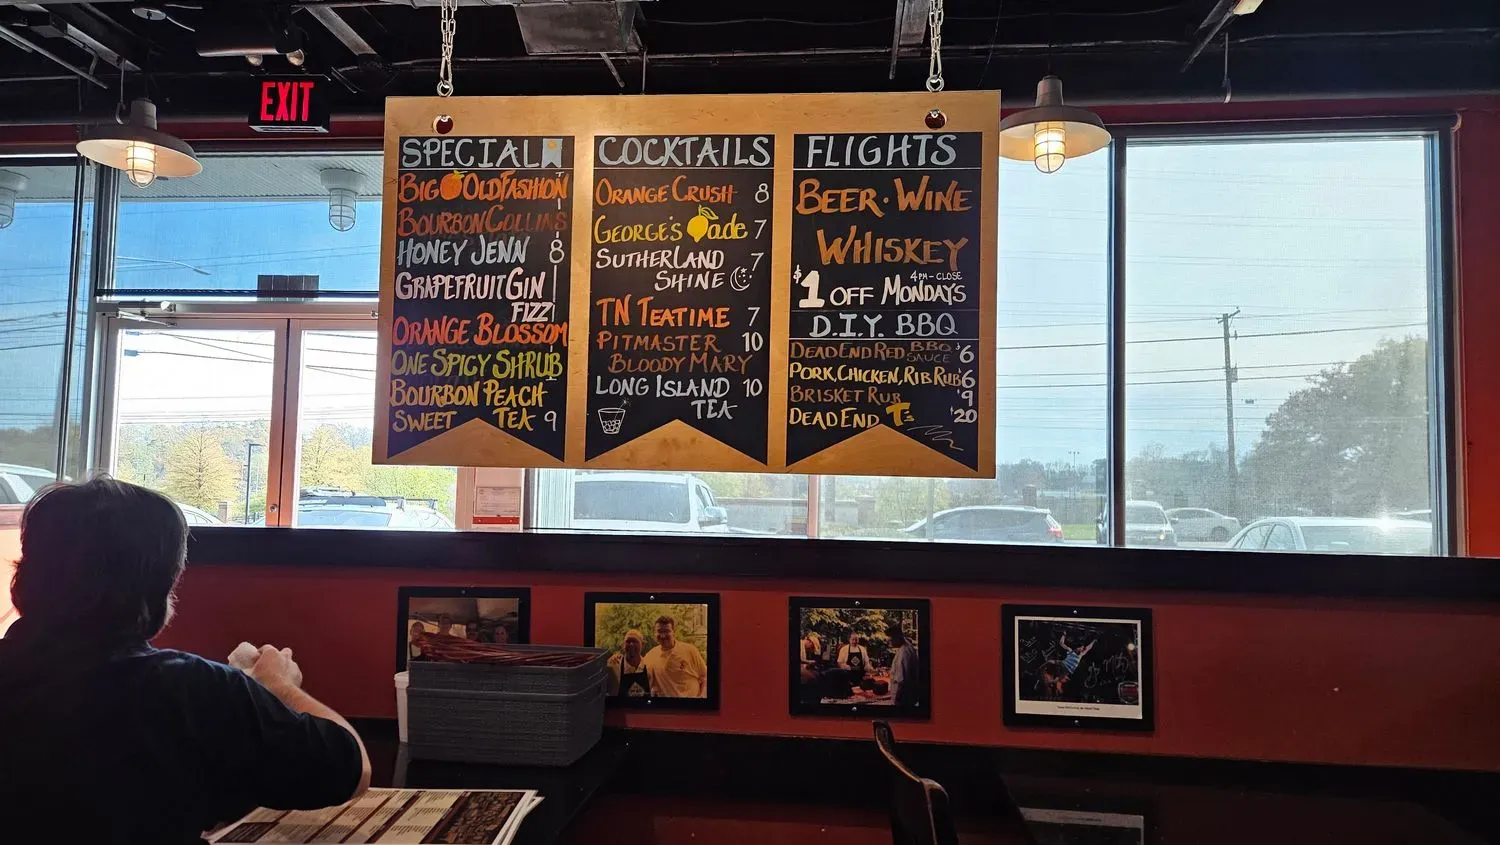 EXIT
SPECIAL
BIG OLD FASHION
BOURBON COLLINS
HONEY JENN 8
GRAPEFRUIT GIN
FIZZ
ORANGE BLOSSOM
ONE SPICY SHRUB
BOURBON PEACH
SWEET TEA 9
COCKTAILS
ORANGE CRUSH 8
GEORGE'S ade 7
SUTHERLAND 7
SHINE
TN TEATIME 7
PITMASTER 10
BLOODY MARY
LONG ISLAND 10
TEA
FLIGHTS
BEER · WINE
WHISKEY
4PM-CLOSE
$1 OFF MONDAYS
D.I.Y. BBQ
DEAD END RED BBQ SAUCE $6
PORK, CHICKEN, RIB RUB $6
BRISKET RUB $9
DEAD END T's $20